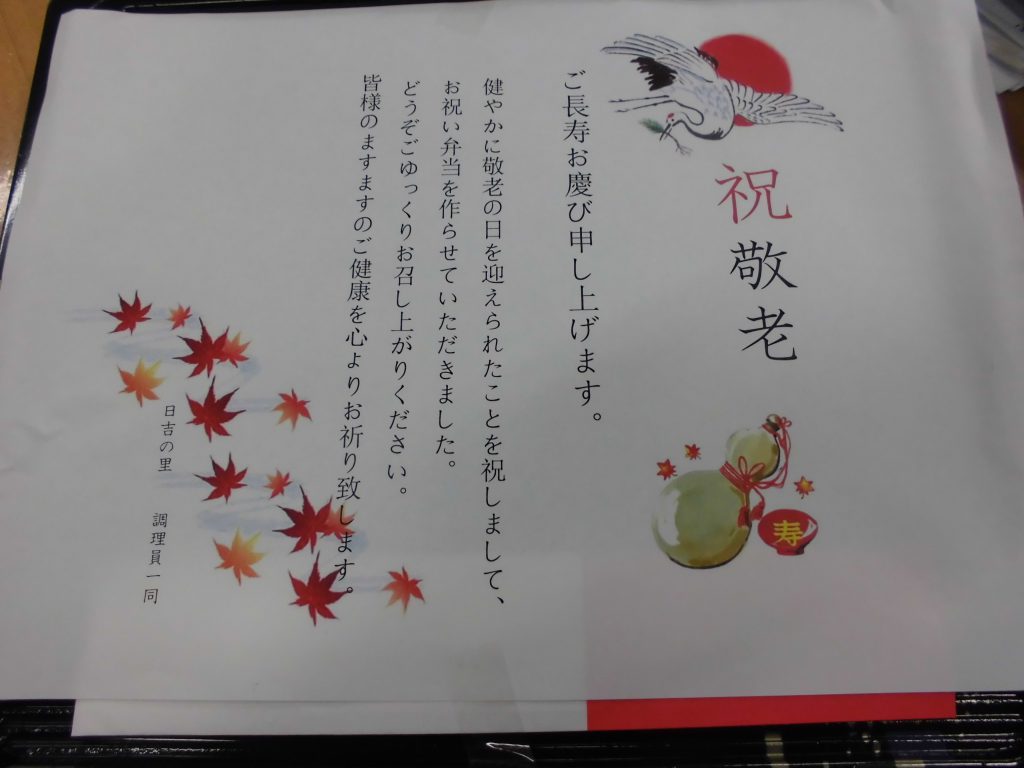 祝敬老
寿
ご長寿お慶び申し上げます。
健やかに敬老の日を迎えられたことを祝しまして、
お祝い弁当を作らせていただきました。
どうぞごゆっくりお召し上がりください。
皆様のますますのご健康を心よりお祈り致します。
日吉の里　調理員一同